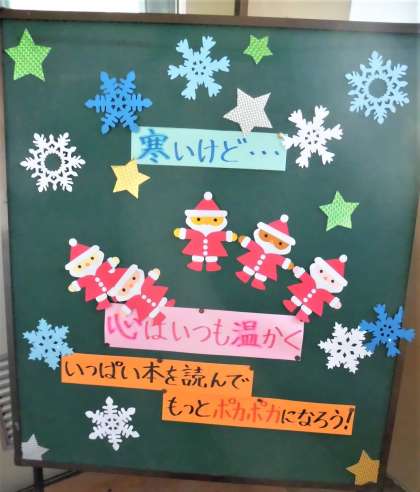 寒いけど・・・
心はいつも温かく
いっぱい本を読んで
もっとポカポカになろう!